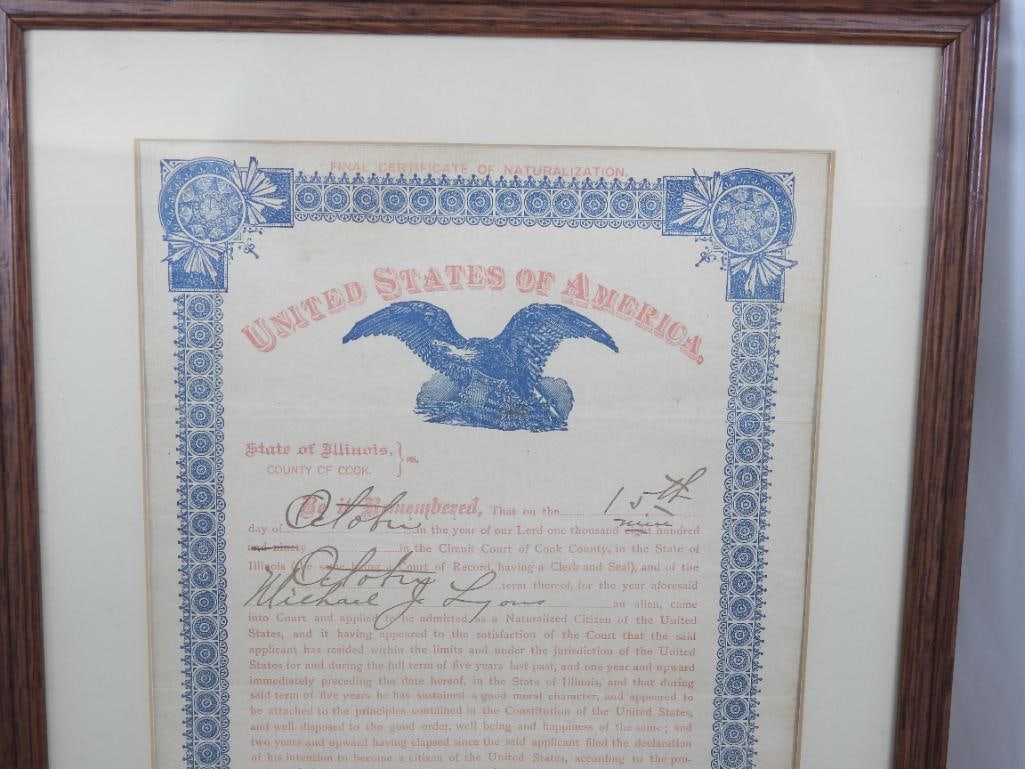 FINAL CERTIFICATE OF NATURALIZATION.
UNITED STATES OF AMERICA.
State of Illinois, } ss.
COUNTY OF COOK.
Be it Remembered, That on the 15th
day of October in the year of our Lord one thousand eight nine hundred
and ninety in the Circuit Court of Cook County, in the State of
Illinois (the same being a Court of Record, having a Clerk and Seal), and of the
October term thereof, for the year aforesaid
Michael J Lyons an alien, came
into Court and applied to be admitted as a Naturalized Citizen of the United
States, and it having appeared to the satisfaction of the Court that the said
applicant has resided within the limits and under the jurisdiction of the United
States for and during the full term of five years last past, and one year and upward
immediately preceding the date hereof, in the State of Illinois, and that during
said term of five years he has sustained a good moral character, and appeared to
be attached to the principles contained in the Constitution of the United States,
and well disposed to the good order, well being and happiness of the same; and
two years and upward having elapsed since the said applicant filed the declaration
of his intention to become a citizen of the United States, according to the pro-